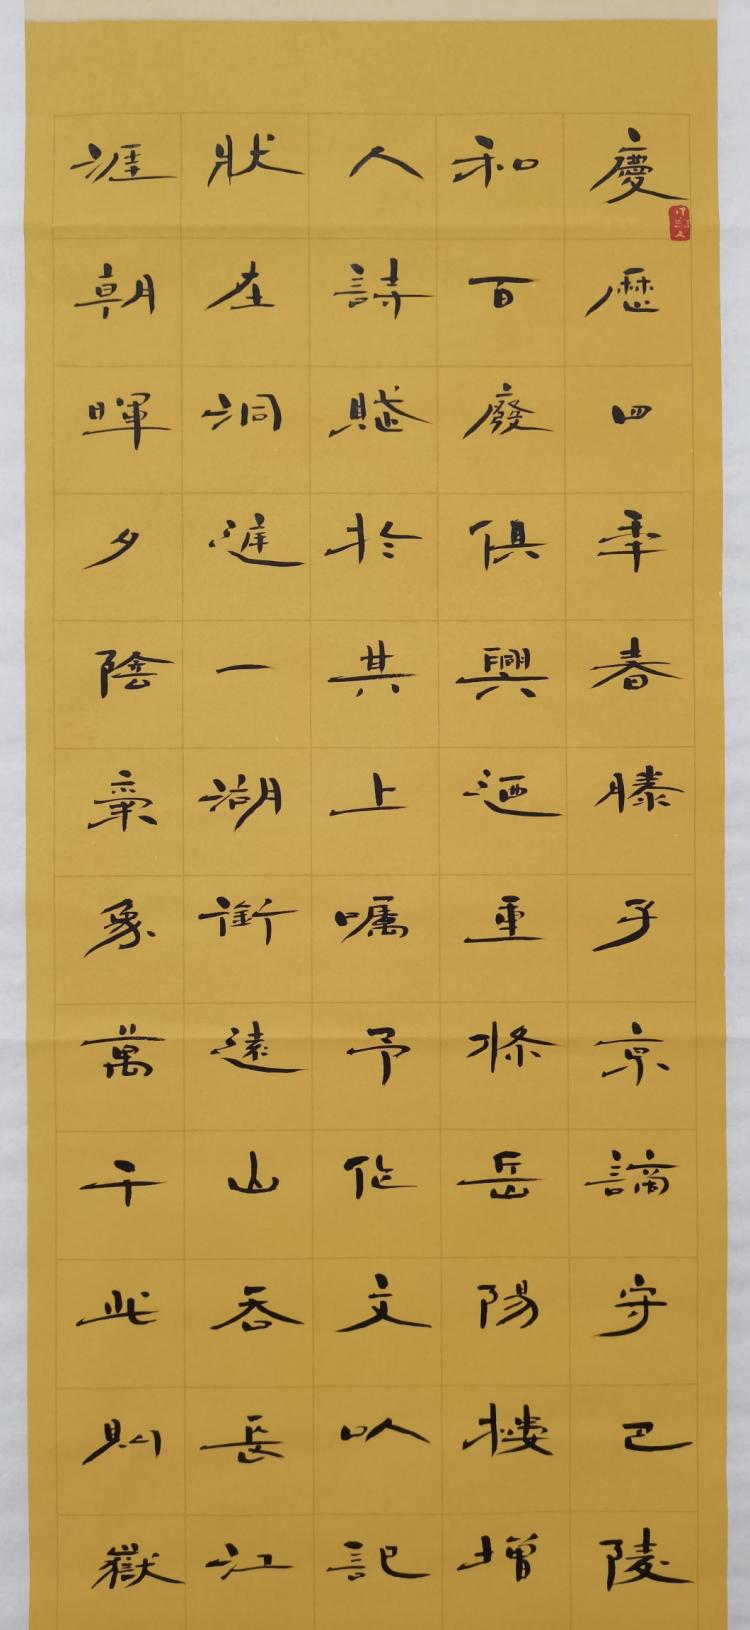 慶歷四年春滕子京謫守巴陵
和百廢俱興迺重脩岳陽樓增
人詩賦於其上囑予作文以記
狀在洞遲一湖銜遠山吞長江
涯朝暉夕陰氣象萬千此則嶽